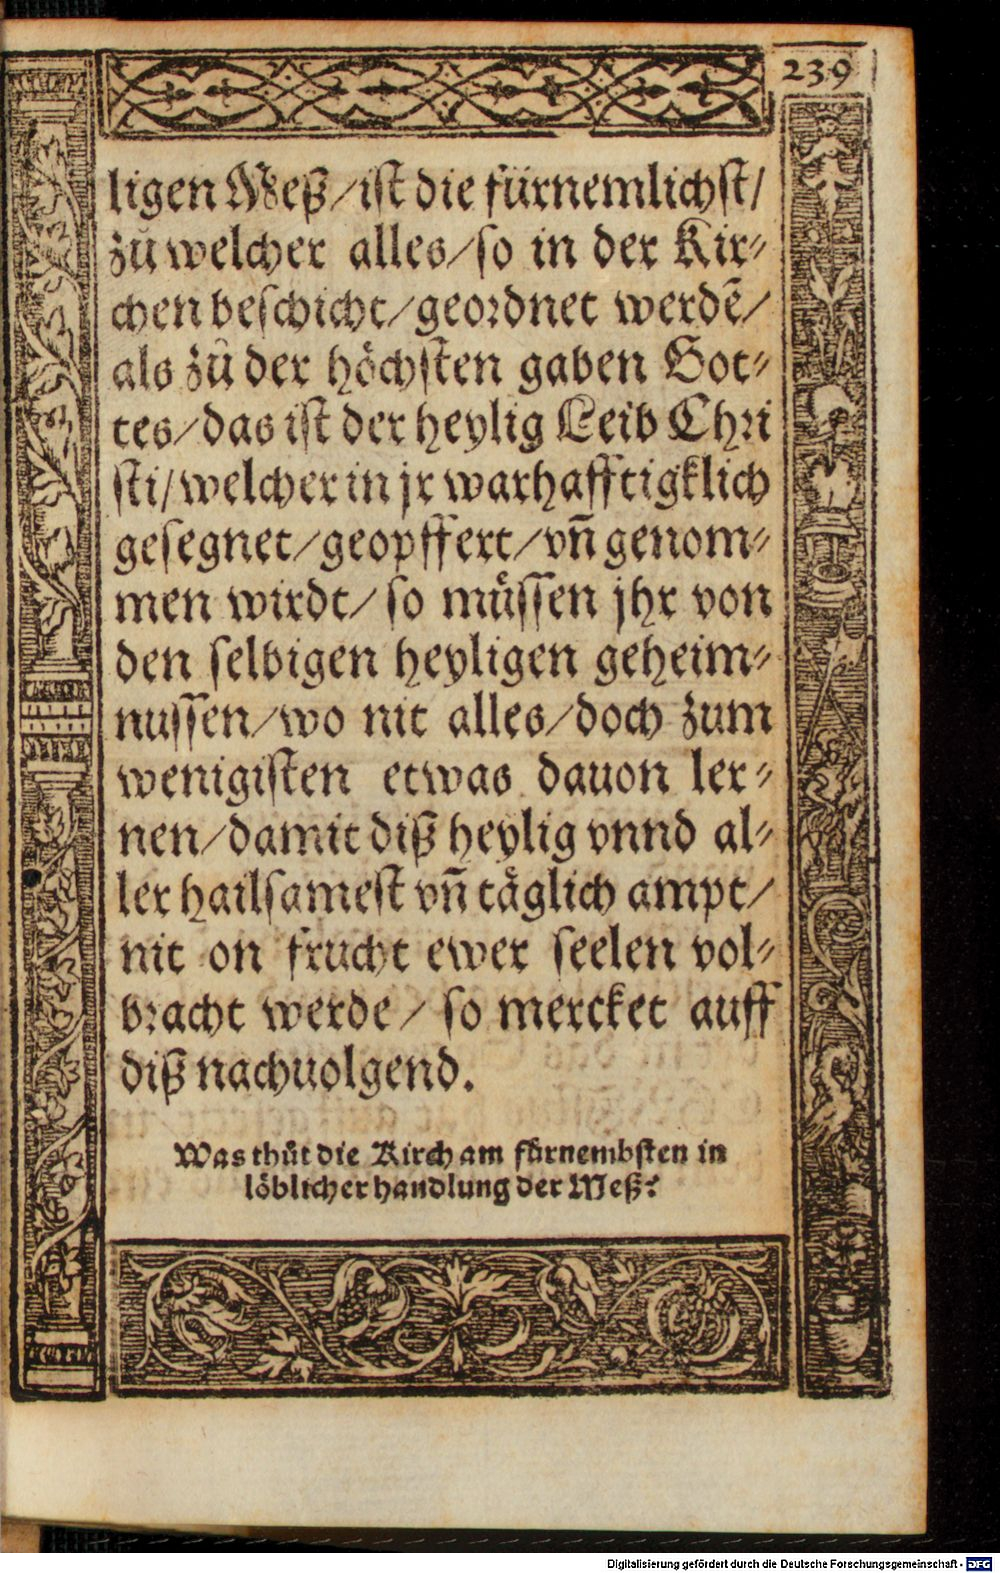 239
ligen Meß/ist die fürnemlichst/
zů welcher alles/so in der Kir⸗
chen beschicht/geordnet werdē/
als zů der höchsten gaben Got⸗
tes/das ist der heylig Leib Chri
sti/welcher in jr warhafftigklich
gesegnet/geopffert/vñ genom⸗
men wirdt/so müssen jhr von
den selbigen heyligen geheim⸗
nussen/wo nit alles/doch zum
wenigisten etwas dauon ler⸗
nen/damit diß heylig vnnd al⸗
ler hailsamest vñ täglich ampt/
nit on frucht ewer seelen vol⸗
bracht werde/so mercket auff
diß nachuolgend.
Was thůt die Kirch am fürnembsten in
löblicher handlung der Meß?
Digitalisierung gefördert durch die Deutsche Forschungsgemeinschaft - DFG